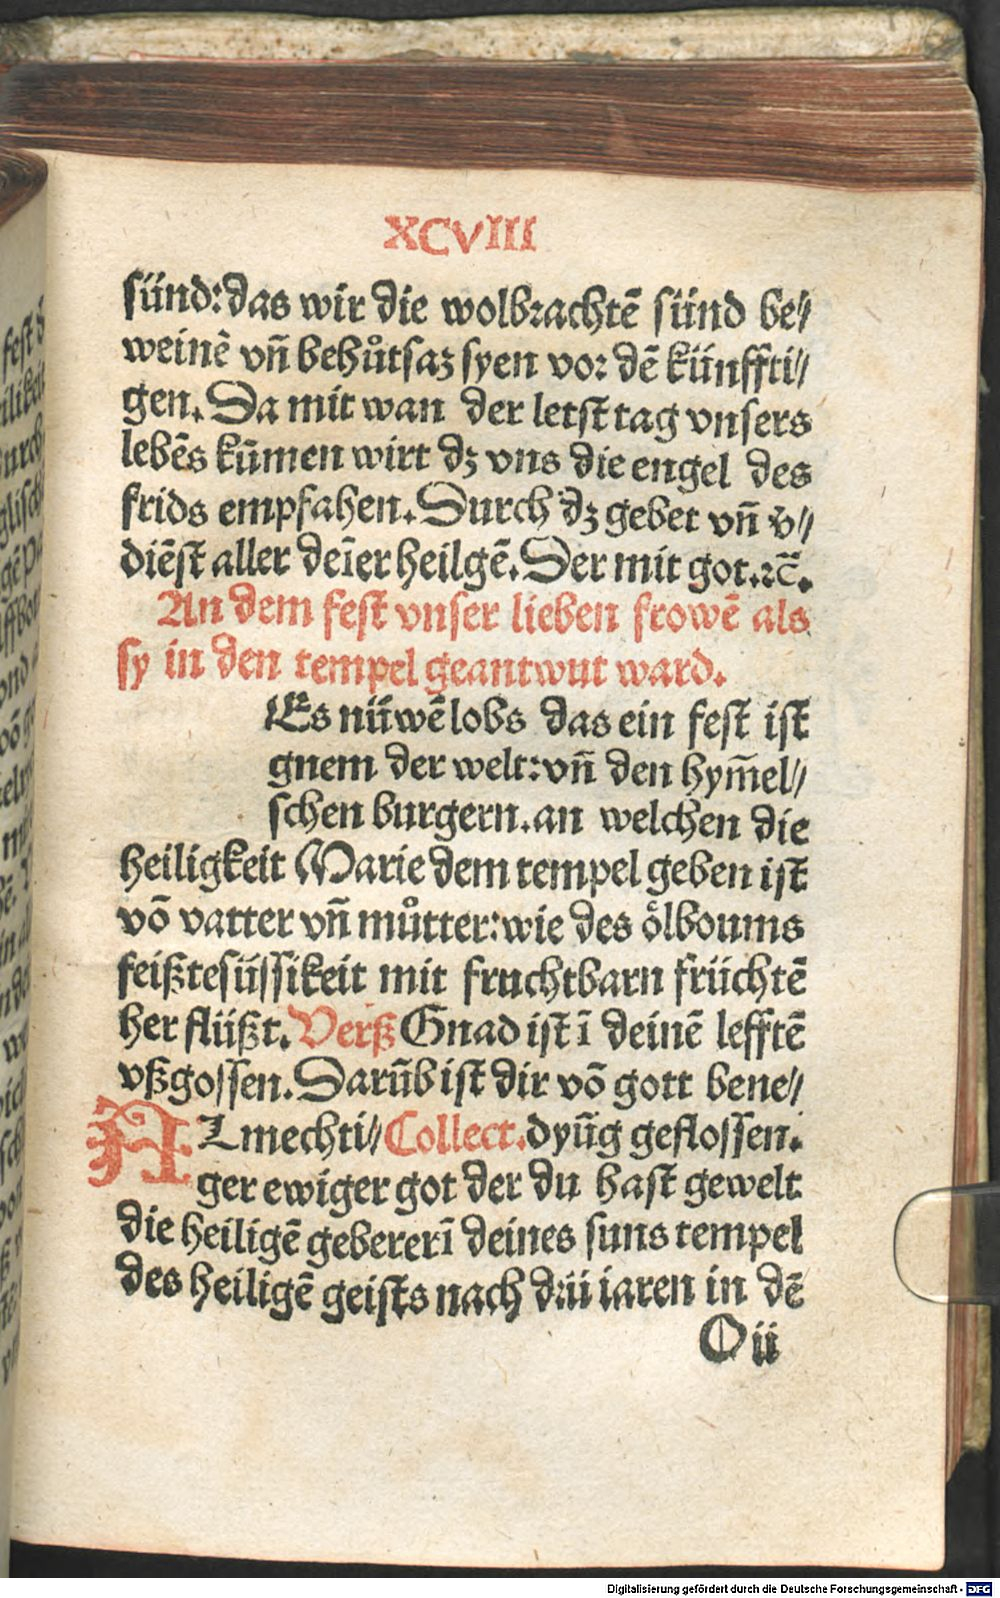 XCVIII
sünd: das wir die wolbrachtē sünd be⸗
weinē vn̄ behůtsaʒ syen vor dē künffti⸗
gen. Da mit wan der letst tag vnsers
lebēs kūmen wirt dʒ vns die engel des
frids empfahen. Durch dʒ gebet vn̄ v̄⸗
diēst aller deīer heilgē. Der mit got. ⁊c̄.
An dem fest vnser lieben frowē als
sy in den tempel geantwut ward.
Es nüwē lobs das ein fest ist
gnem der welt: vn̄ den hym̄el⸗
schen burgern. an welchen die
heiligkeit Marie dem tempel geben ist
vō vatter vn̄ můtter: wie des ölboums
feißte süssikeit mit fruchtbarn früchtē
her flüßt. Verß Gnad ist ī deinē lefftē
vßgossen. Darūb ist dir vō gott bene⸗
ALmechti⸗ Collect. dyūg geflossen.
ger ewiger got der du hast gewelt
die heiligē gebererī deines suns tempel
des heiligē geists nach drii iaren in dē
O ii
Digitalisierung gefördert durch die Deutsche Forschungsgemeinschaft - DFG